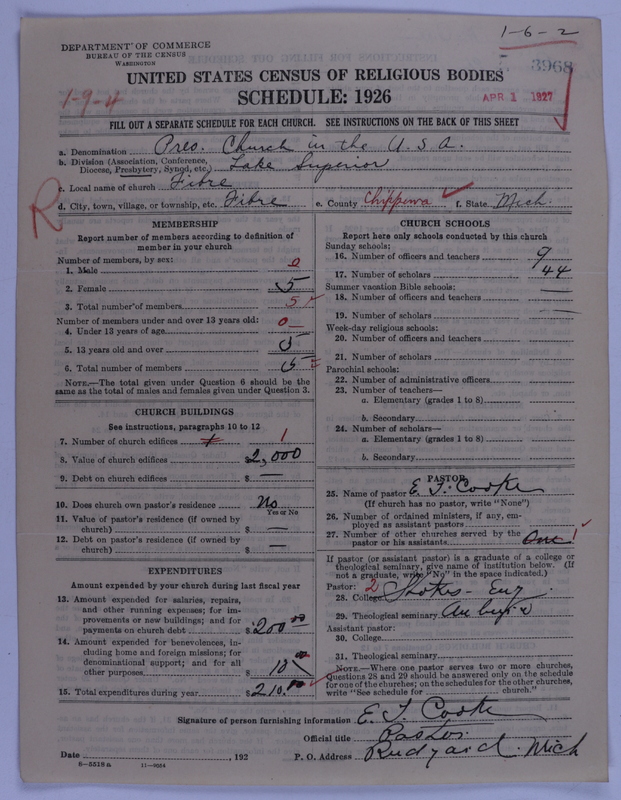 1-6-2
DEPARTMENT OF COMMERCE
BUREAU OF THE CENSUS
WASHINGTON
3968
UNITED STATES CENSUS OF RELIGIOUS BODIES
SCHEDULE: 1926
APR 1 1927
1-9-4
FILL OUT A SEPARATE SCHEDULE FOR EACH CHURCH. SEE INSTRUCTIONS ON THE BACK OF THIS SHEET
a. Denomination Pres. Church in the U.S.A.
b. Division (Association, Conference,
Diocese, Presbytery, Synod, etc.) Lake Superior
c. Local name of church Fibre
d. City, town, village, or township, etc. Fibre e. County Chippewa f. State Mich.
R
MEMBERSHIP
Report number of members according to definition of
member in your church
Number of members, by sex:
1. Male 0
2. Female 5
3. Total number of members 5
Number of members under and over 13 years old:
4. Under 13 years of age 0
5. 13 years old and over 5
6. Total number of members 5
NOTE.—The total given under Question 6 should be the
same as the total of males and females given under Question 3.
CHURCH BUILDINGS
See instructions, paragraphs 10 to 12
7. Number of church edifices 1
8. Value of church edifices $2,000
9. Debt on church edifices $ —
10. Does church own pastor's residence No
Yes or No
11. Value of pastor's residence (if owned by
church) $ —
12. Debt on pastor's residence (if owned by
church) $ —
EXPENDITURES
Amount expended by your church during last fiscal year
13. Amount expended for salaries, repairs,
and other running expenses; for im-
provements or new buildings; and for
payments on church debt $200.00
14. Amount expended for benevolences, in-
cluding home and foreign missions; for
denominational support; and for all
other purposes 10.00
15. Total expenditures during year $210.00
CHURCH SCHOOLS
Report here only schools conducted by this church
Sunday schools:
16. Number of officers and teachers 9
17. Number of scholars 44
Summer vacation Bible schools:
18. Number of officers and teachers —
19. Number of scholars —
Week-day religious schools:
20. Number of officers and teachers
21. Number of scholars
Parochial schools:
22. Number of administrative officers
23. Number of teachers—
a. Elementary (grades 1 to 8)
b. Secondary
24. Number of scholars—
a. Elementary (grades 1 to 8)
b. Secondary
PASTOR
25. Name of pastor E. T. Cooke
(If church has no pastor, write "None")
26. Number of ordained ministers, if any, em-
ployed as assistant pastors
27. Number of other churches served by the
pastor or his assistants One 1
If pastor (or assistant pastor) is a graduate of a college or
theological seminary, give name of institution below. (If
not a graduate, write "No" in the space indicated.)
Pastor: 2
28. College Stokes - Eng
29. Theological seminary
Assistant pastor:
30. College
31. Theological seminary
NOTE.—Where one pastor serves two or more churches,
Questions 28 and 29 should be answered only on the schedule
for one of the churches; on the schedules for the other churches,
write "See schedule for church."
Signature of person furnishing information E. T. Cooke
Official title Pastor
Date , 192 P. O. Address Rudyard. Mich
8—5518a 11—9554